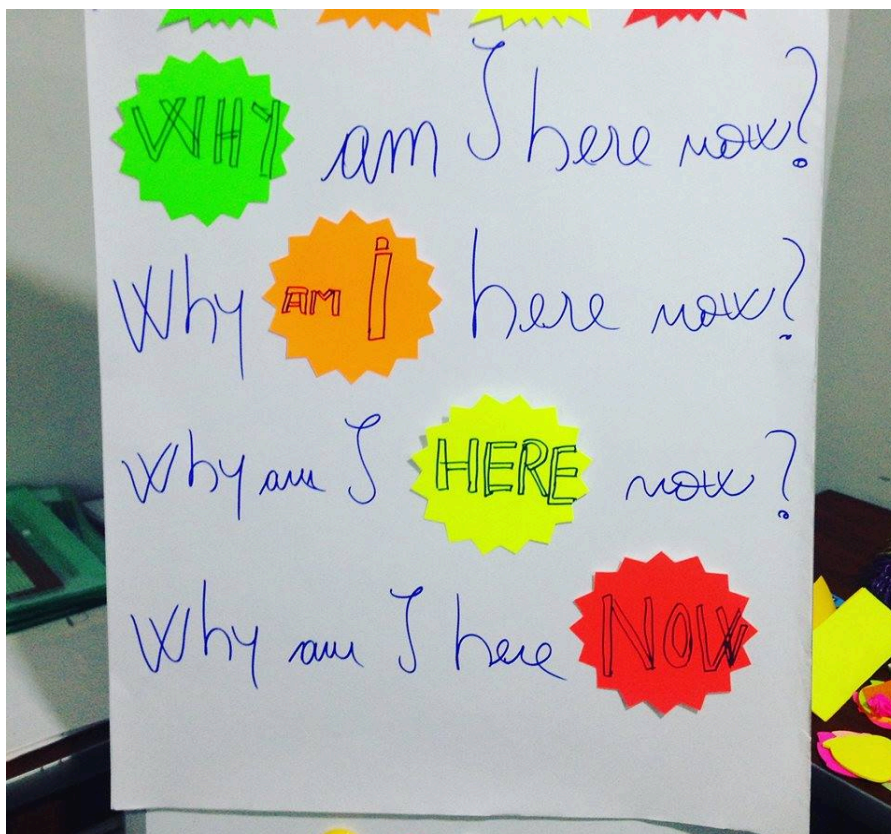 WHY am I here now?
Why AM I here now?
Why am I HERE now?
Why am I here NOW